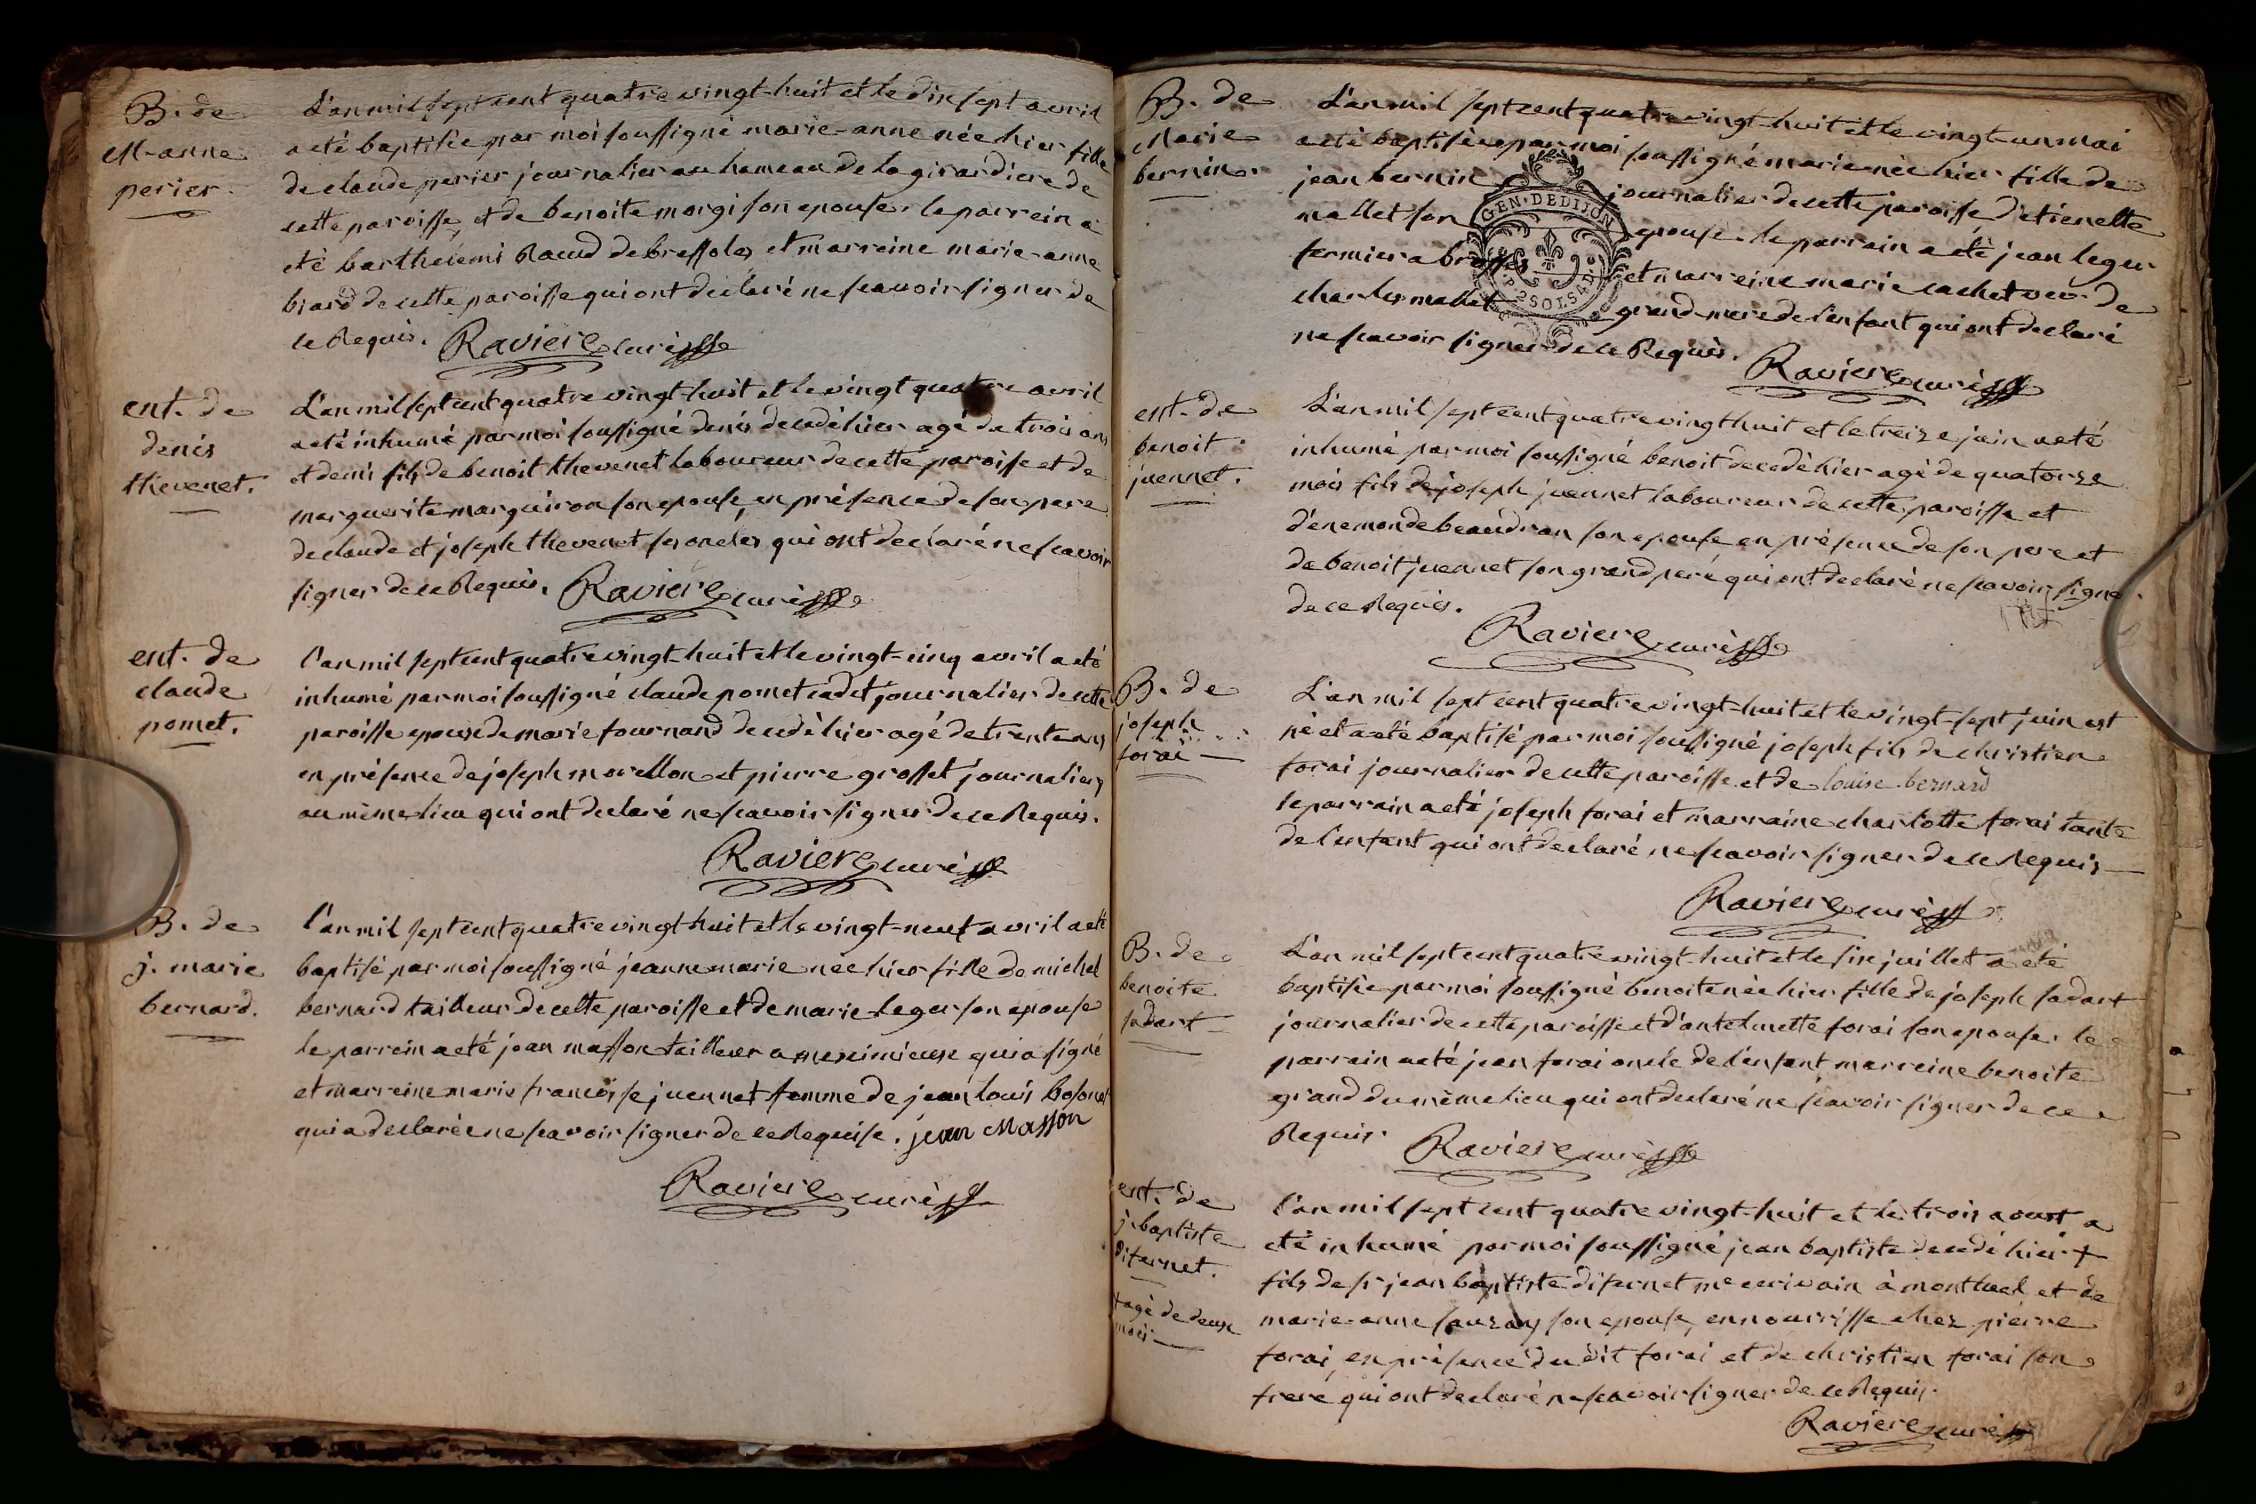 B. de
M-anne
perier.
L'an mil sept cent quatre vingt-huit et le dix sept avril
a eté baptisée par moi soussigné marie-anne née hier fille
de claude perier journalier au hameau de la girardiere de
cette paroisse, et de benoite morgi son epouse. le parrein a
eté barthelemi Raud de bressoles et marreine marie-anne
biard de cette paroisse qui ont declaré ne scavoir signer de
ce Requis. Raviere curé
ent. de
denis
thevenet.
L'an mil sept cent quatre vingt-huit et le vingt quatre avril
a eté inhumé par moi soussigné denis decedé hier agé de trois ans
et demi fils de benoit thevenet laboureur de cette paroisse et de
marguerite marguiron son epouse, en présence de son pere
de claude et joseph thevenet ses oncles qui ont declaré ne scavoir
signer de ce Requis. Raviere curé
ent. de
claude
pomet.
l'an mil sept cent quatre vingt-huit et le vingt-cinq avril a eté
inhumé par moi soussigné claude pomet cadet journalier de cette
paroisse epoux de marie fournand decedé hier agé de trente ans
en présence de joseph morellon et pierre grosset journaliers
au même lieu qui ont declaré ne scavoir signer de ce Requis.
Raviere curé
B. de
j. marie
bernard.
l'an mil sept cent quatre vingt-huit et le vingt-neuf avril a eté
baptisé par moi soussigné jeanne marie née hier fille de michel
bernard tailleur de cette paroisse et de marie leger son epouse
le parrein a eté jean masson tailleur a meximieux qui a signé
et marreine marie francoise juennet femme de jean louis bosonet
qui a declarée ne scavoir signer de ce Requise. jean Masson
Raviere curé
B. de
Marie
bernin.
L'an mil sept cent quatre vingt-huit et le vingt-un mai
a eté baptisée par moi soussigné marie née hier fille de
jean bernin journalier de cette paroisse d'etienette
mallet son epouse. le parrain a eté jean leger
fermier a brosses et marreine marie cachet veu. de
charles mallet grand-mere de l'enfant qui ont declaré
ne scavoir signer de ce Requis. Raviere curé
GEN. DE DIJON
2 SOLS 4 D.
ent. de
benoit
juennet.
L'an mil sept cent quatre vingt huit et le treize juin a eté
inhumé par moi soussigné benoit decedé hier agé de quatorze
mois fils de joseph juennet laboureur de cette paroisse et
d'enemonde beaudran son epouse en présence de son pere et
de benoit juennet son grand pere qui ont declaré ne scavoir signe
de ce Requis.
Raviere curé
B. de
joseph
forai
L'an mil sept cent quatre vingt-huit et le vingt-sept juin est
né et a eté baptisé par moi soussigné joseph fils de christien
forai journalier de cette paroisse et de louise bernard
le parrain a eté joseph forai et marraine charlotte forai tante
de l'enfant qui ont declaré ne scavoir signer de ce Requis
Raviere curé
B. de
benoite
sadart
L'an mil sept cent quatre vingt-huit et le six juillet a eté
baptisée par moi soussigné benoite née hier fille de joseph sadart
journalier de cette paroisse et d'antelmette forai son epouse. le
parrain a eté jean forai oncle de l'enfant marreine benoite
grand du même lieu qui ont declaré ne scavoir signer de ce
Requis. Raviere curé
ent. de
j. baptiste
difernet.
+ agé de deux
mois
l'an mil sept cent quatre vingt-huit et le trois aoust a
eté inhumé par moi soussigné jean baptiste decedé hier +
fils de sr jean baptiste difernet me ecrivain à montluel et de
marie-anne sauzay son epouse, en nourrisse chez pierre
forai, en présence du dit forai et de christien forai son
frere qui ont declaré ne scavoir signer de ce Requis.
Raviere curé